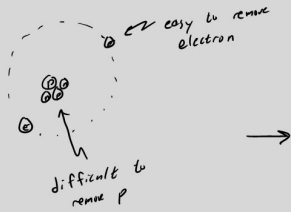 easy to remove
electron
P
difficult to
remove P